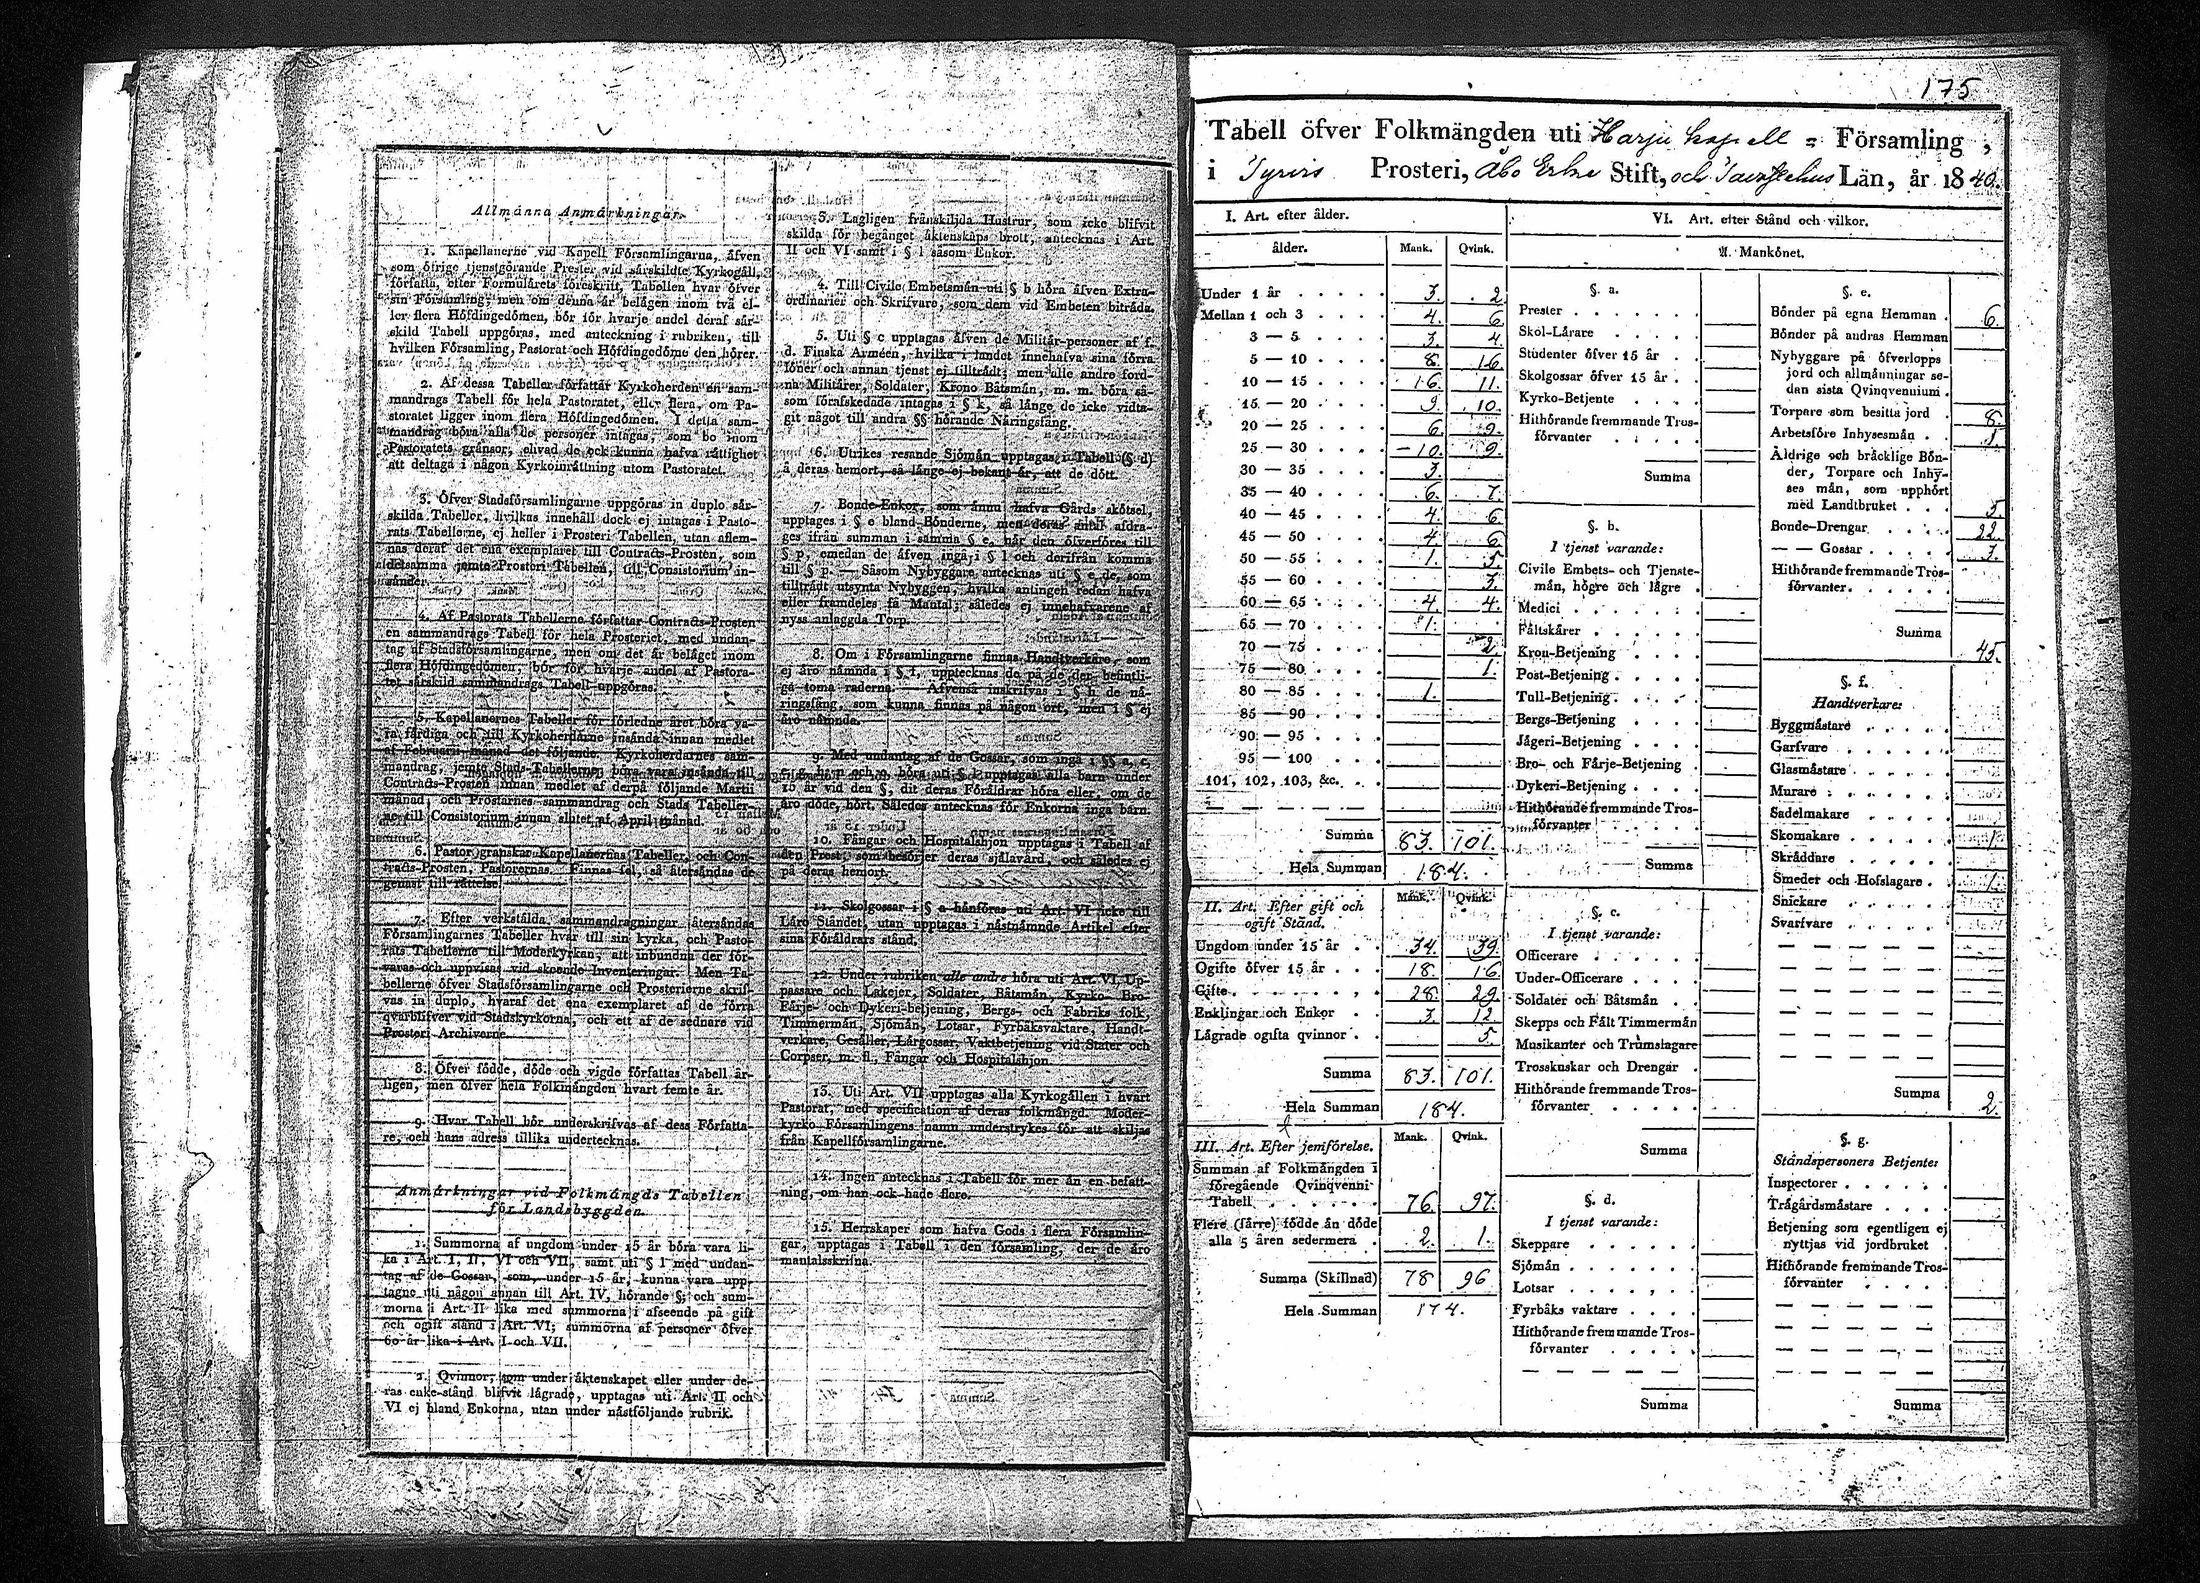 Allmänna Anmärkningar.
1. Kapellanerne vid Kapell Församlingarna, äfven
som öfrige tjenstgörande Prester vid särskildte Kyrkogäll,
författa, efter Formulärets föreskrift, Tabellen hvar öfver
sin Församling; men om denna är belägen inom två el-
ler flera Höfdingedömen, bör för hvarje andel deraf sär-
skild Tabell uppgöras, med anteckning i rubriken, till
hvilken Församling, Pastorat och Höfdingedöme den hörer.
2. Af dessa Tabeller författar Kyrkoherden en sam-
mandrags Tabell för hela Pastoratet, eller flera, om Pa-
storatet ligger inom flera Höfdingedömen. I detta sam-
mandrag böra alla de personer intagas, som bo inom
Pastoratets gränsor, ehvad de ock kunna hafva rättighet
att deltaga i någon Kyrkoinrättning utom Pastoratet.
3. Öfver Stadsförsamlingarne uppgöras in duplo sär-
skilda Tabeller, hvilkas innehåll dock ej intagas i Pasto-
rats Tabellerne, ej heller i Prosteri Tabellen, utan aflem-
nas deraf det ena exemplaret till Contracts-Prosten, som
detsamma jemte Prosteri Tabellen, till Consistorium in-
sänder.
4. Af Pastorats Tabellerne författar Contracts-Prosten
en sammandrags Tabell för hela Prosteriet, med undan-
tag af Stadsförsamlingarne, men om det är beläget inom
flera Höfdingedömen, bör för hvarje andel af Pastora-
tet särskild sammandrags Tabell uppgöras.
5. Kapellanernes Tabeller för förledne året böra va-
ra färdiga och till Kyrkoherdarne insända innan medlet
af Februarii månad det följande. Kyrkoherdarnes sam-
mandrag, jemte Stads-Tabellerne, böra vara insända till
Contracts-Prosten innan medlet af derpå följande Martii
månad, och Prostarnes sammandrag och Stads Tabeller-
ne till Consistorium innan slutet af April månad.
6. Pastor granskar Kapellanernas Tabeller, och Con-
tracts-Prosten, Pastorernas. Finnas fel, så återsändas de
genast till rättelse.
7. Efter verkställda sammandragningar återsändas
Församlingarnes Tabeller hvar till sin kyrka, och Pasto-
rats Tabellerne till Moderkyrkan, att inbundna der för-
varas och uppvisas vid skeende Inventeringar. Men Ta-
bellerne öfver Stadsförsamlingarne och Prosterierne skrif-
vas in duplo, hvaraf det ena exemplaret af de förra
qvarblifver vid Stadskyrkorna, och ett af de sednare vid
Prosteri Archivarne.
8. Öfver födde, döde och vigde författas Tabell år-
ligen, men öfver hela Folkmängden hvart femte år.
9. Hvar Tabell bör underskrifvas af dess Författa-
re, och hans adress tillika undertecknas.
Anmärkningar vid Folkmängds Tabellen
för Landsbyggden.
1. Summorna af ungdom under 15 år böra vara li-
ka i Art. I, II, VI och VII, samt uti § l med undan-
tag af de Gossar, som, under 15 år, kunna vara upp-
tagne uti någon annan till Art. IV, hörande §; och sum-
morna i Art. II lika med summorna i afseende på gift
och ogift stånd i Art. VI; summorna af personer öfver
60 år lika i Art. I och VII.
2. Qvinnor, som under äktenskapet eller under de-
ras enke-stånd blifvit lägrade, upptagas uti Art. II och
VI ej bland Enkorna, utan under nästföljande rubrik.
3. Lagligen frånskiljda Hustrur, som icke blifvit
skilda för begånget äktenskaps brott, antecknas i Art.
II och VI samt i § l såsom Enkor.
4. Till Civile Embetsmän uti § b höra äfven Extra-
ordinarier och Skrifvare, som dem vid Embeten biträda.
5. Uti § c upptagas äfven de Militär-personer af f.
d. Finska Arméen, hvilka i landet innehafva sina förra
löner och annan tjenst ej tillträdt; men alle andre ford-
na Militärer, Soldater, Krono Båtsmän, m. m. böra så-
som förafskedade intagas i § k, så länge de icke vidta-
git något till andra §§ hörande Näringsfång.
6. Utrikes resande Sjömän upptagas i Tabell (§ d)
å deras hemort, så länge ej bekant är, att de dött.
7. Bonde-Enkor, som ännu hafva Gårds skötsel,
upptages i § e bland Bönderne, men deras antal afdra-
ges ifrån summan i samma § e, når den öfverföres till
§ p, emedan de äfven ingå i § l och derifrån komma
till § p. — Såsom Nybyggare antecknas uti § e de, som
tillträdt utsynta Nybyggen, hvilka antingen redan hafva
eller framdeles få Mantal; således ej innehafvarene af
nyss anlaggda Torp.
8. Om i Församlingarne finnas Handtverkare, som
ej äro nämnda i § f, upptecknas de på de der befintli-
ga toma raderna. Äfvenså inskrifvas i § h de nä-
ringsfång, som kunna finnas på någon ort, men i § ej
äro nämnde.
9. Med undantag af de Gossar, som ingå i §§ a, c,
e, g, h, n och o, böra uti § l upptagas alla barn under
15 år vid den §, dit deras Föräldrar höra eller, om de
äro döde, hört. Således antecknas för Enkorna inga barn.
10. Fångar och Hospitalshjon upptagas i Tabell af
den Prest, som besörjer deras själavård, och således ej
på deras hemort.
11. Skolgossar i § a hänföras uti Art. VI icke till
Läro Ståndet, utan upptagas i nästnämnde Artikel efter
sina Föräldrars stånd.
12. Under rubriken alle andre höra uti Art. VI, Up-
passare och Lakejer, Soldater, Båtsmän, Kyrko- Bro-
Färje- och Dykeri-betjening, Bergs- och Fabriks folk,
Timmermän, Sjömän, Lotsar, Fyrbåksvaktare, Handt-
verkare, Gesäller, Lärgossar, Vaktbetjening vid Stater och
Corpser, m. fl., Fångar och Hospitalshjon.
13. Uti Art. VII upptagas alla Kyrkogällen i hvart
Pastorat, med specification af deras folkmängd. Moder-
kyrko Församlingens namn understrykes för att skiljas
från Kapellförsamlingarne.
14. Ingen antecknas i Tabell för mer än en befatt-
ning, om han ock hade flere.
15. Herrskaper som hafva Gods i flera Församlin-
gar, upptagas i Tabell i den församling, der de äro
mantalsskrifna.
175
Tabell öfver Folkmängden uti Harju kapell = Församling,
i Tyrvis Prosteri, Åbo Erke Stift, och Tavastehus Län, år 1840.
I. Art. efter ålder.
ålder. Mank. Qvink.
Under 1 år 3. 2
Mellan 1 och 3 4. 6
3 — 5 3. 4.
5 — 10 8. 16.
10 — 15 16. 11.
15 — 20 9. 10.
20 — 25 6. 9.
25 — 30 10. 9.
30 — 35 3.
35 — 40 6. 7.
40 — 45 4. 6
45 — 50 4. 6
50 — 55 1. 5.
55 — 60 3.
60 — 65 4. 4.
65 — 70 1.
70 — 75 2.
75 — 80 1.
80 — 85 1.
85 — 90
90 — 95
95 — 100
101, 102, 103, &c.
Summa 83. 101.
Hela Summan 184.
II. Art. Efter gift och Mank. Qvink.
ogift Stånd.
Ungdom under 15 år 34. 39.
Ogifte öfver 15 år 18. 16.
Gifte 28. 29.
Enklingar och Enkor 3. 12.
Lägrade ogifta qvinnor 5.
Summa 83. 101.
Hela Summan 184.
III. Art. Efter jemförelse. Mank. Qvink.
Summan af Folkmängden i
föregående Qvinqvenni
Tabell 76. 97.
Flere (färre) födde än döde
alla 5 åren sedermera 2. 1.
Summa (Skillnad) 78 96
Hela Summan 174.
VI. Art. efter Stånd och vilkor.
A. Mankönet.
§. a.
Prester
Skol-Lärare
Studenter öfver 15 år
Skolgossar öfver 15 år
Kyrko-Betjente
Hithörande fremmande Tros-
förvanter
Summa
§. b.
I tjenst varande:
Civile Embets- och Tjenste-
män, högre och lägre
Medici
Fältskärer
Kron-Betjening
Post-Betjening
Tull-Betjening
Bergs-Betjening
Jägeri-Betjening
Bro- och Färje-Betjening
Dykeri-Betjening
Hithörande fremmande Tros-
förvanter
Summa
§. c.
I tjenst varande:
Officerare
Under-Officerare
Soldater och Båtsmän
Skepps och Fält Timmermän
Musikanter och Trumslagare
Trosskuskar och Drengar
Hithörande fremmande Tros-
förvanter
Summa
§. d.
I tjenst varande:
Skeppare
Sjömän
Lotsar
Fyrbåks vaktare
Hithörande fremmande Tros-
förvanter
Summa
§. e.
Bönder på egna Hemman 6.
Bönder på andras Hemman
Nybyggare på öfverlopps
jord och allmänningar se-
dan sista Qvinqvennium
Torpare som besitta jord 8.
Arbetsföre Inhysesmän 1.
Åldrige och bräcklige Bön-
der, Torpare och Inhy-
ses män, som upphört
med Landtbruket 5.
Bonde-Drengar 22.
— — Gossar 3.
Hithörande fremmande Tros-
förvanter
Summa 45.
§. f.
Handtverkare:
Byggmästare
Garfvare
Glasmästare
Murare
Sadelmakare
Skomakare 1.
Skräddare
Smeder och Hofslagare 1.
Snickare
Svarfvare
Summa 2.
§. g.
Ståndspersoners Betjente:
Inspectorer
Trägårdsmästare
Betjening som egentligen ej
nyttjas vid jordbruket
Hithörande fremmande Tros-
förvanter
Summa